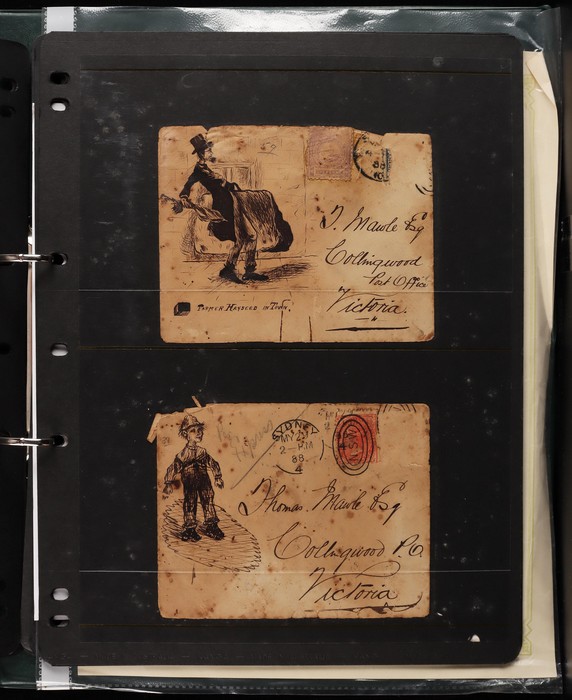 T. Mawle Esq
Collingwood
Post Office
Victoria.
FARMER HAYSEED IN TOWN.
88
SYDNEY
MY 22
2 - PM
88
4
N.S.W
Thomas Mawle Esq
Collingwood P.O.
Victoria